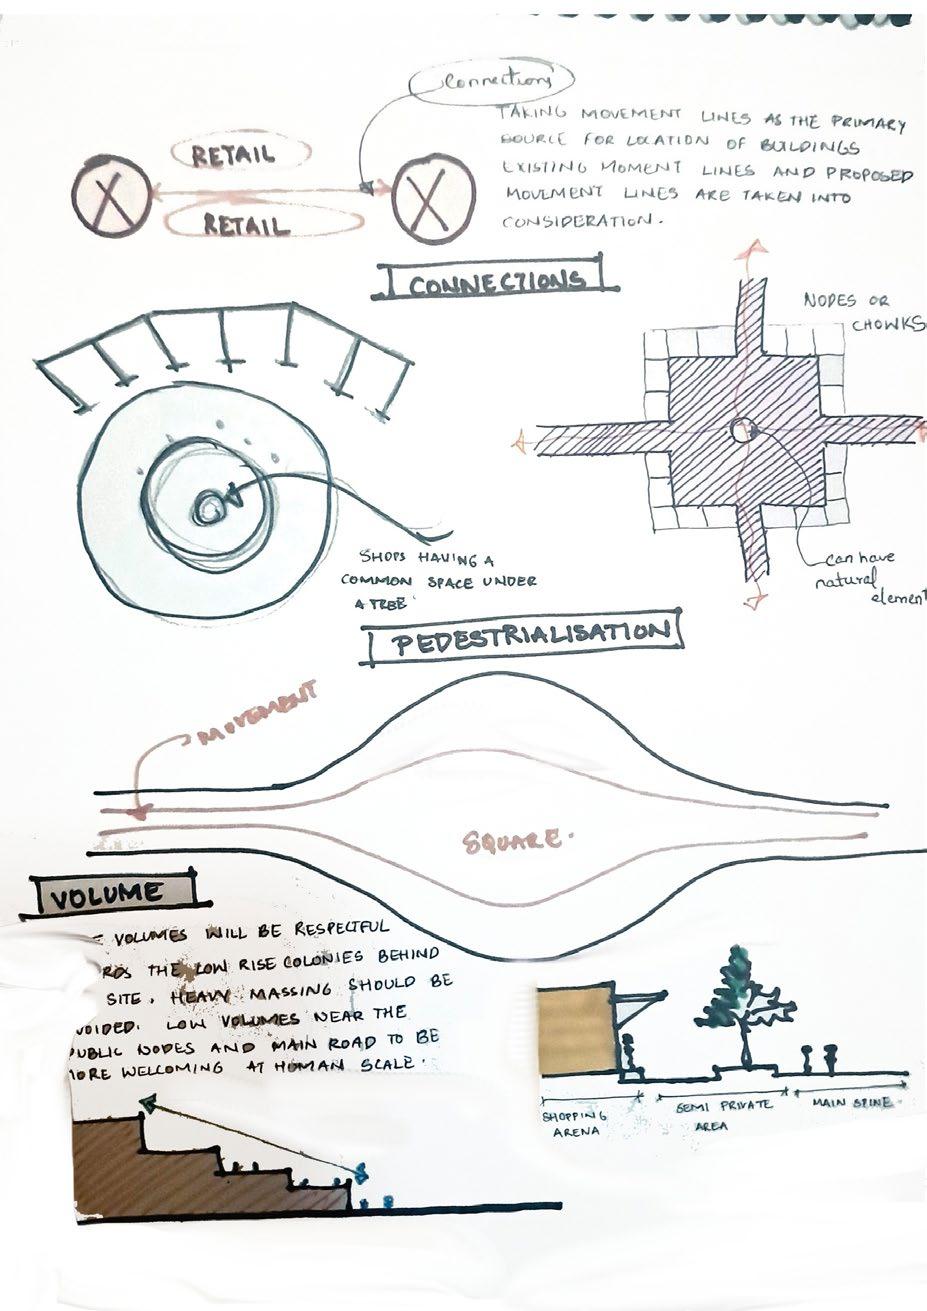 Connections
TAKING MOVEMENT LINES AS THE PRIMARY
SOURCE FOR LOCATION OF BUILDINGS
EXISTING MOMENT LINES AND PROPOSED
MOVEMENT LINES ARE TAKEN INTO
CONSIDERATION.
RETAIL
RETAIL
X
X
CONNECTIONS
NODES OR
CHOWKS
SHOPS HAVING A
COMMON SPACE UNDER
A TREE
can have
natural
element
PEDESTRIALISATION
MOVEMENT
SQUARE.
VOLUME
VOLUMES WILL BE RESPECTFUL
RDS THE LOW RISE COLONIES BEHIND
SITE. HEAVY MASSING SHOULD BE
VOIDED. LOW VOLUMES NEAR THE
UBLIC NODES AND MAIN ROAD TO BE
ORE WELCOMING AT HUMAN SCALE.
SHOPPING
ARENA
SEMI PRIVATE
AREA
MAIN SPINE